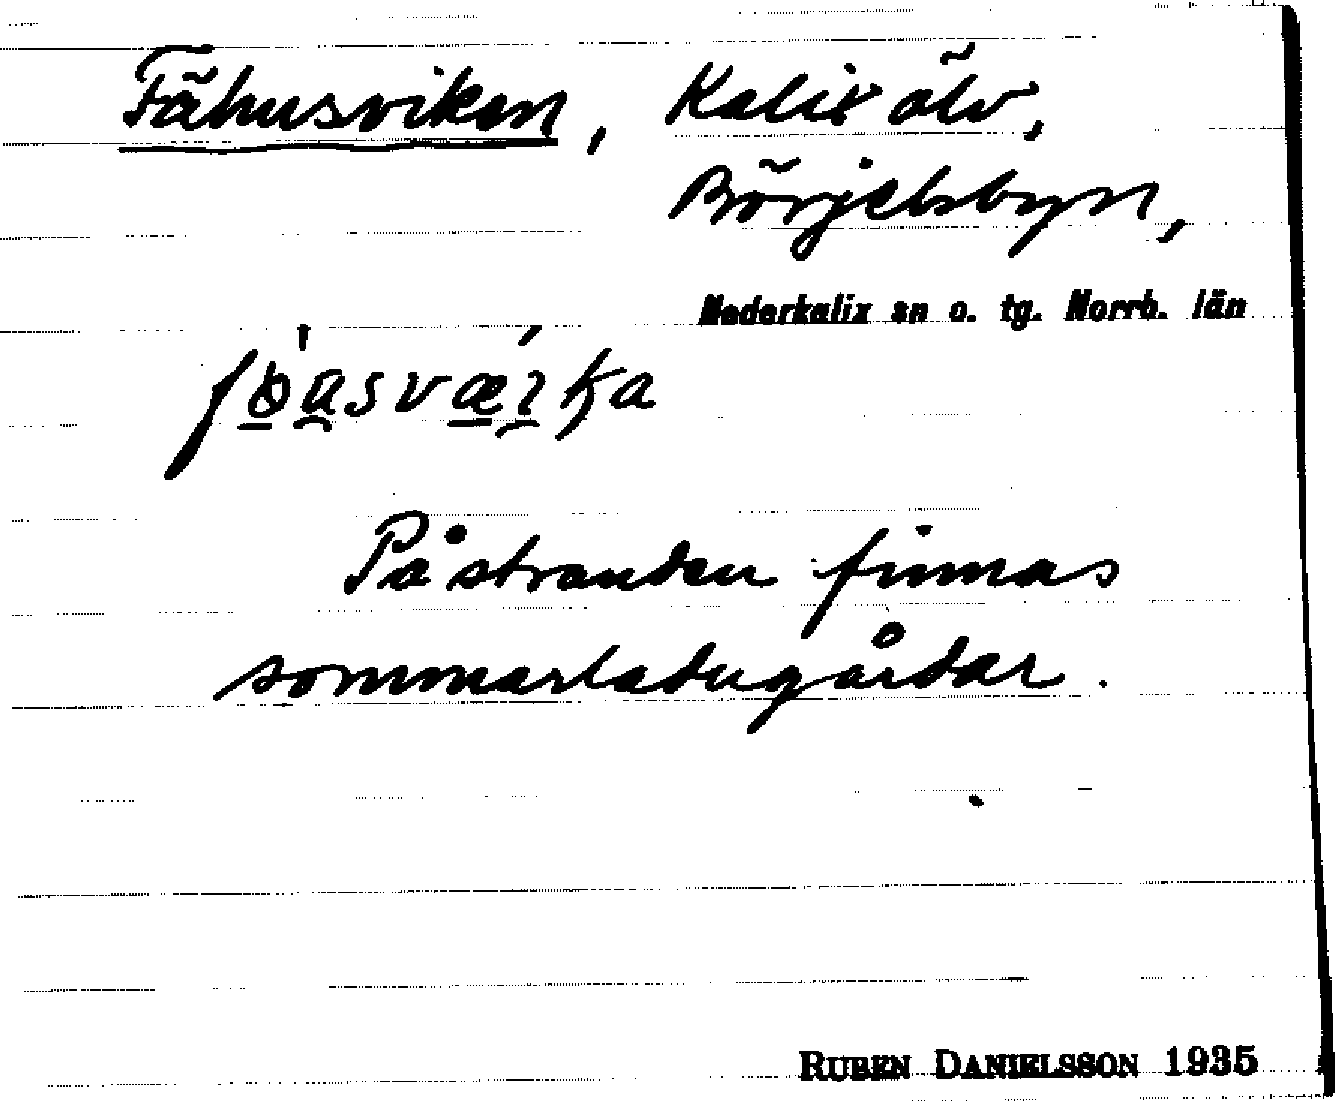 Fähusviken, Kalix älv,
Börjelsbyn,
Nederkalix sn o. tg. Norrb. län
På stranden finnas
sommarladugårdar.
RUBEN DANIELSSON 1935